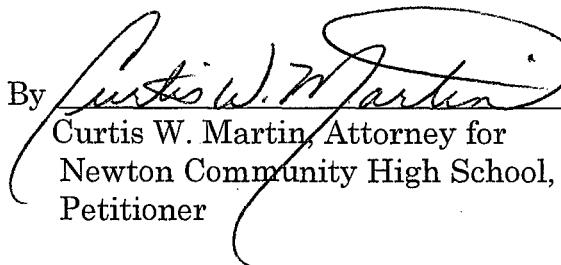 By Curtis W. Martin
Curtis W. Martin, Attorney for
Newton Community High School,
Petitioner